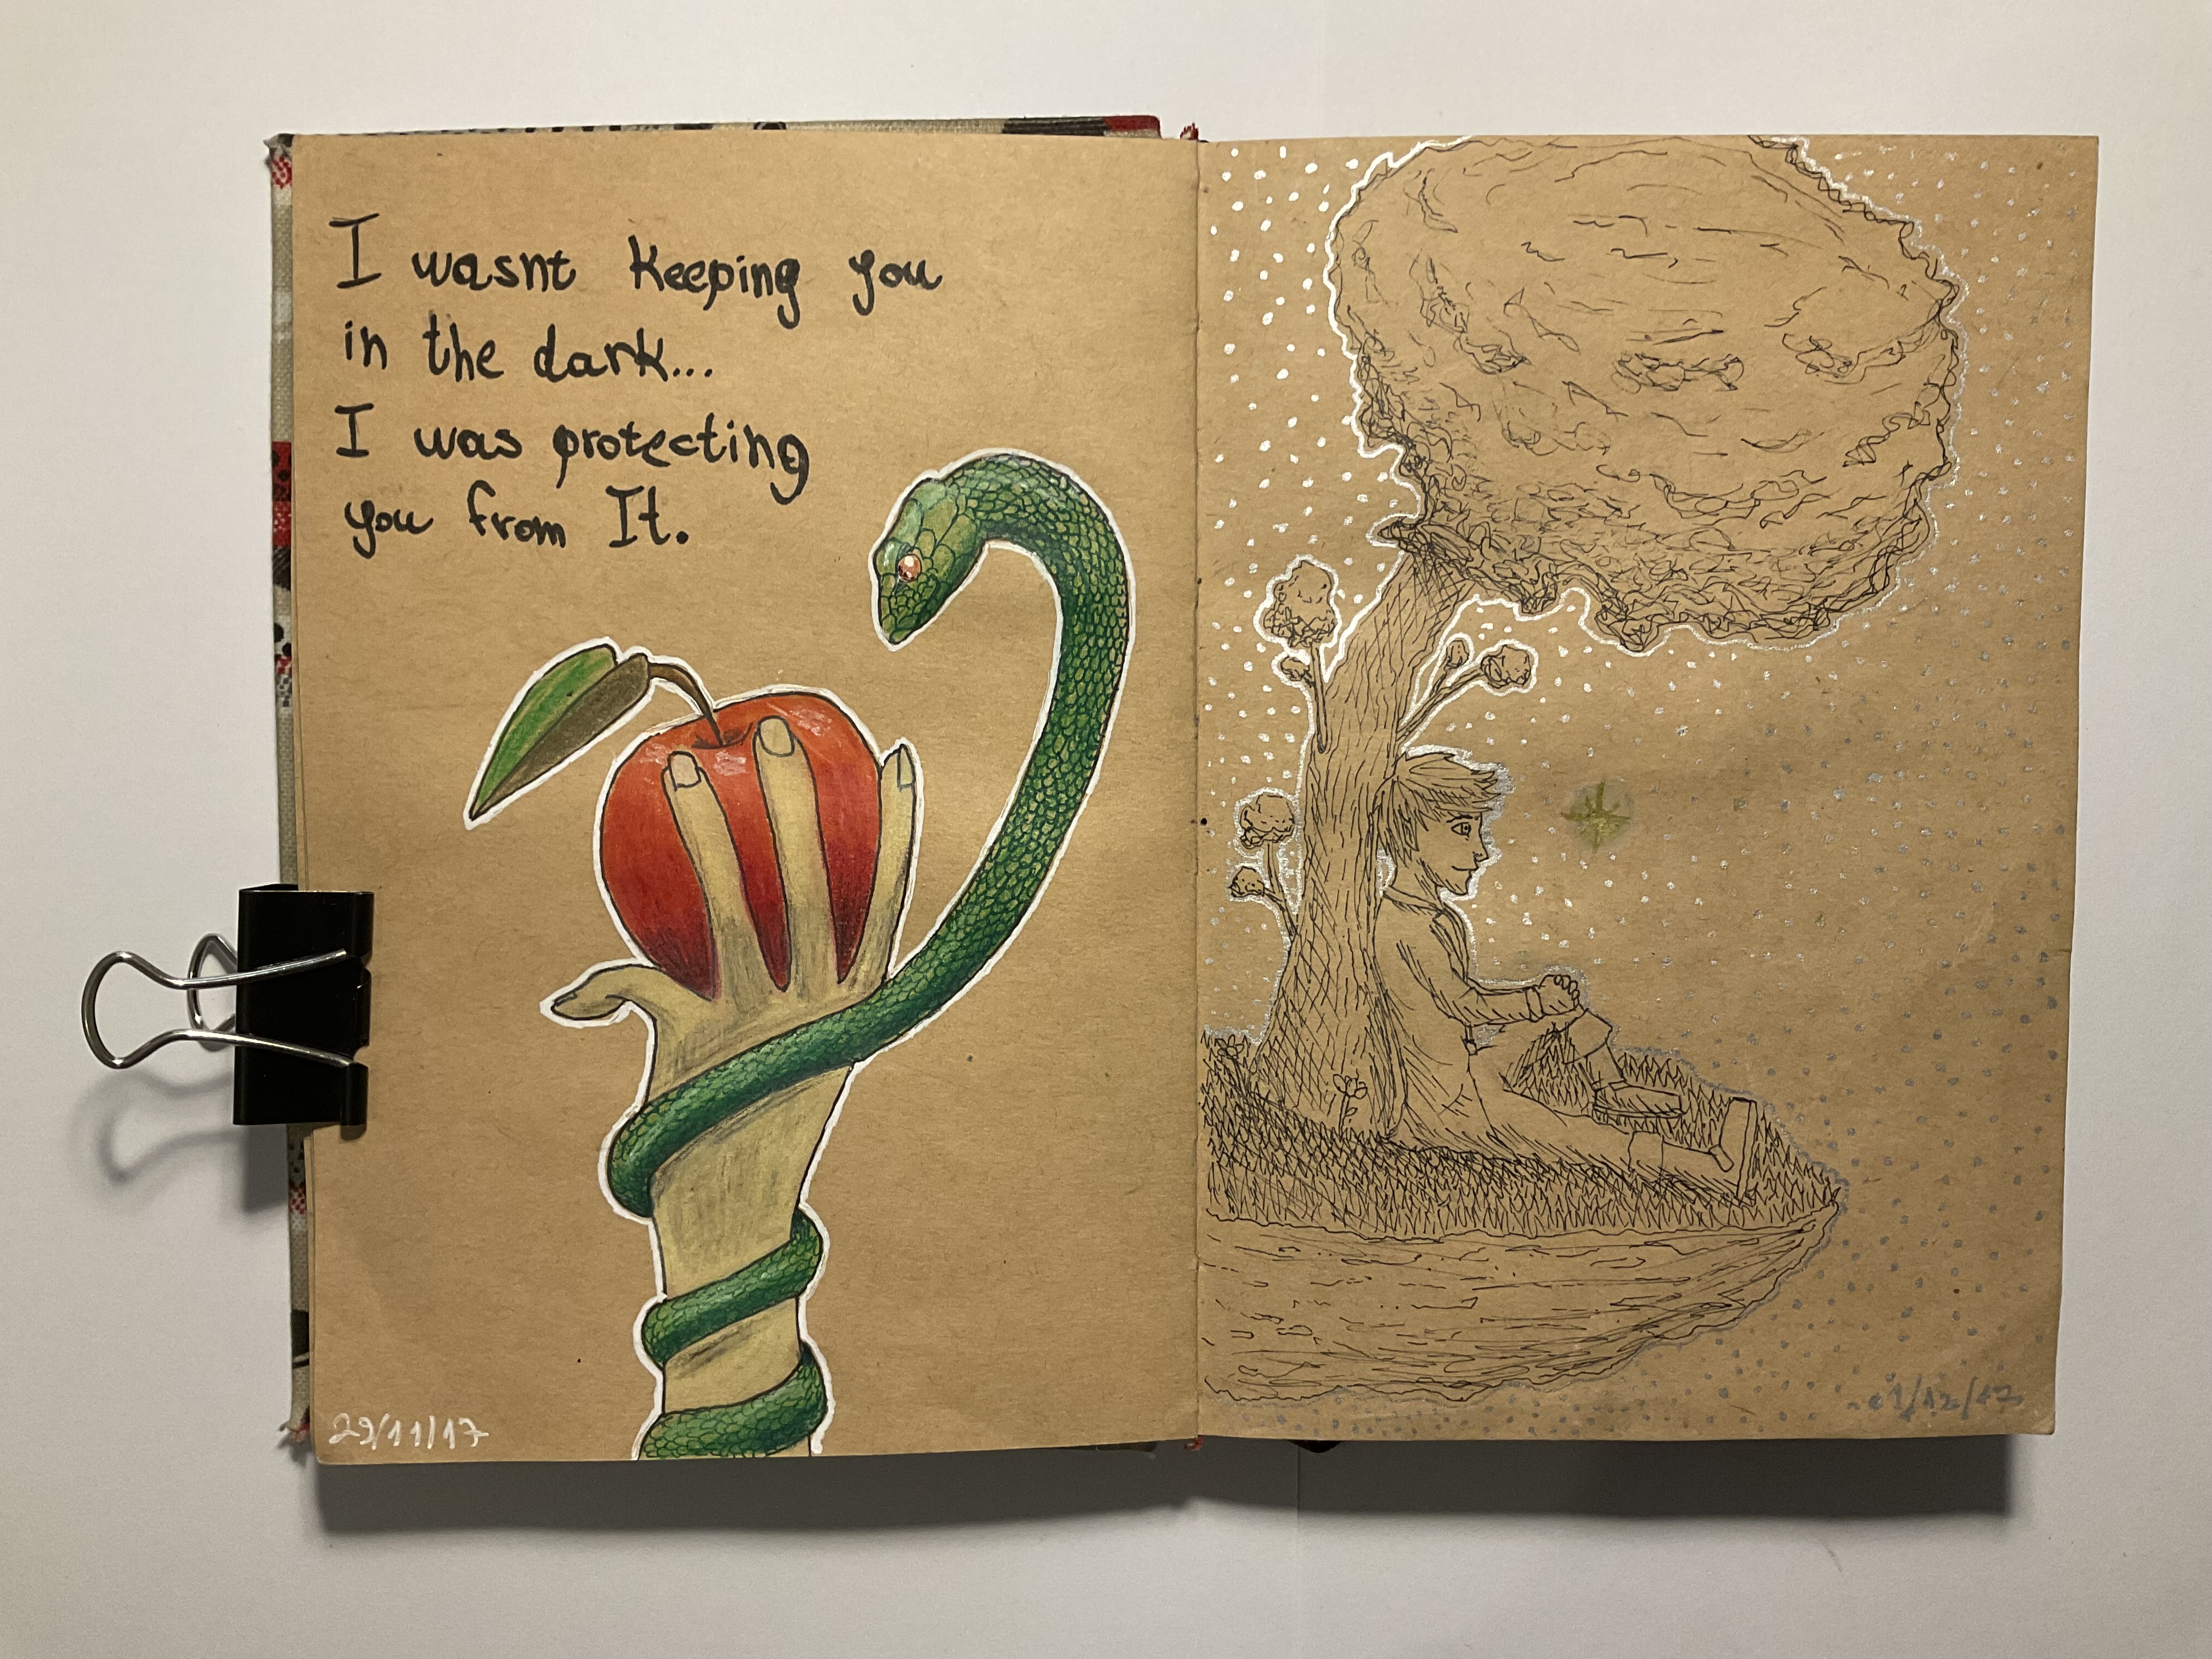 I wasnt keeping you
in the dark...
I was protecting
you from It.
29/11/17
1/12/17